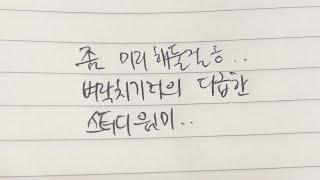 좀 미리 해둘걸 흥..
벼락치기러의 다급한
스터디윗미..